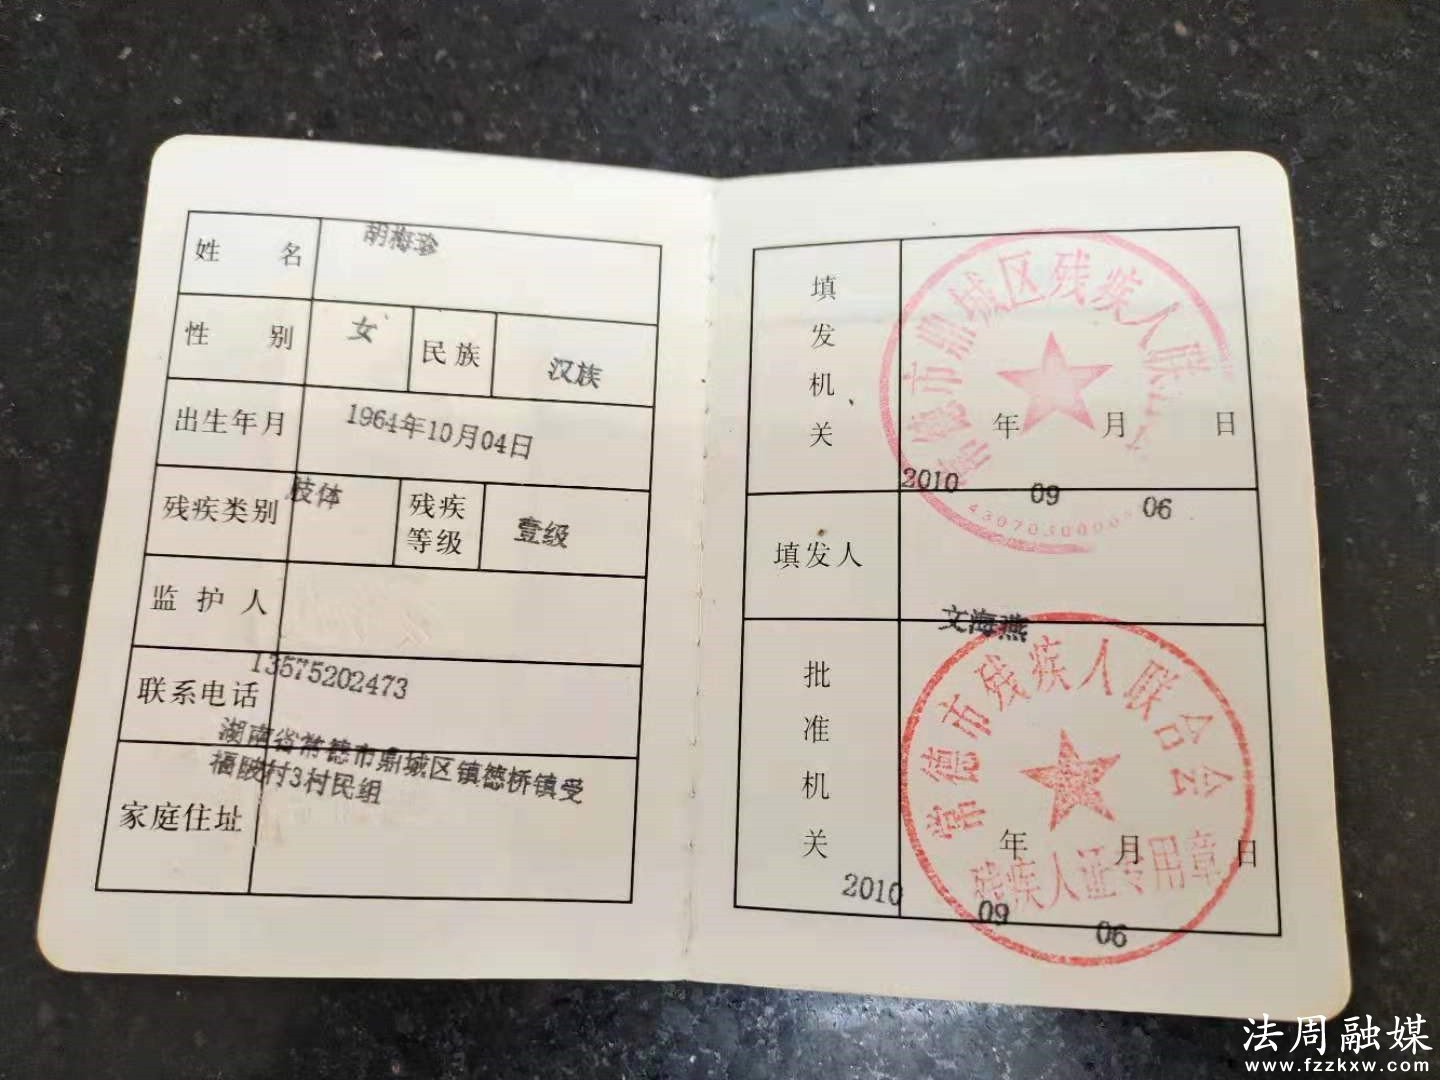 姓 名 胡梅珍
性 别 女 民族 汉族
出生年月 1964年10月04日
残疾类别 肢体 残疾等级 壹级
监 护 人
联系电话 13575202473
家庭住址 湖南省常德市鼎城区镇德桥镇受
福陂村3村民组
填发机关 年 月 日
2010 09 06
常德市鼎城区残疾人联
43070300000
填发人 文海燕
批准机关 年 月 日
2010 09 06
常德市残疾人联合会
残疾人证专用章
法周融媒
www.fzzkxw.com